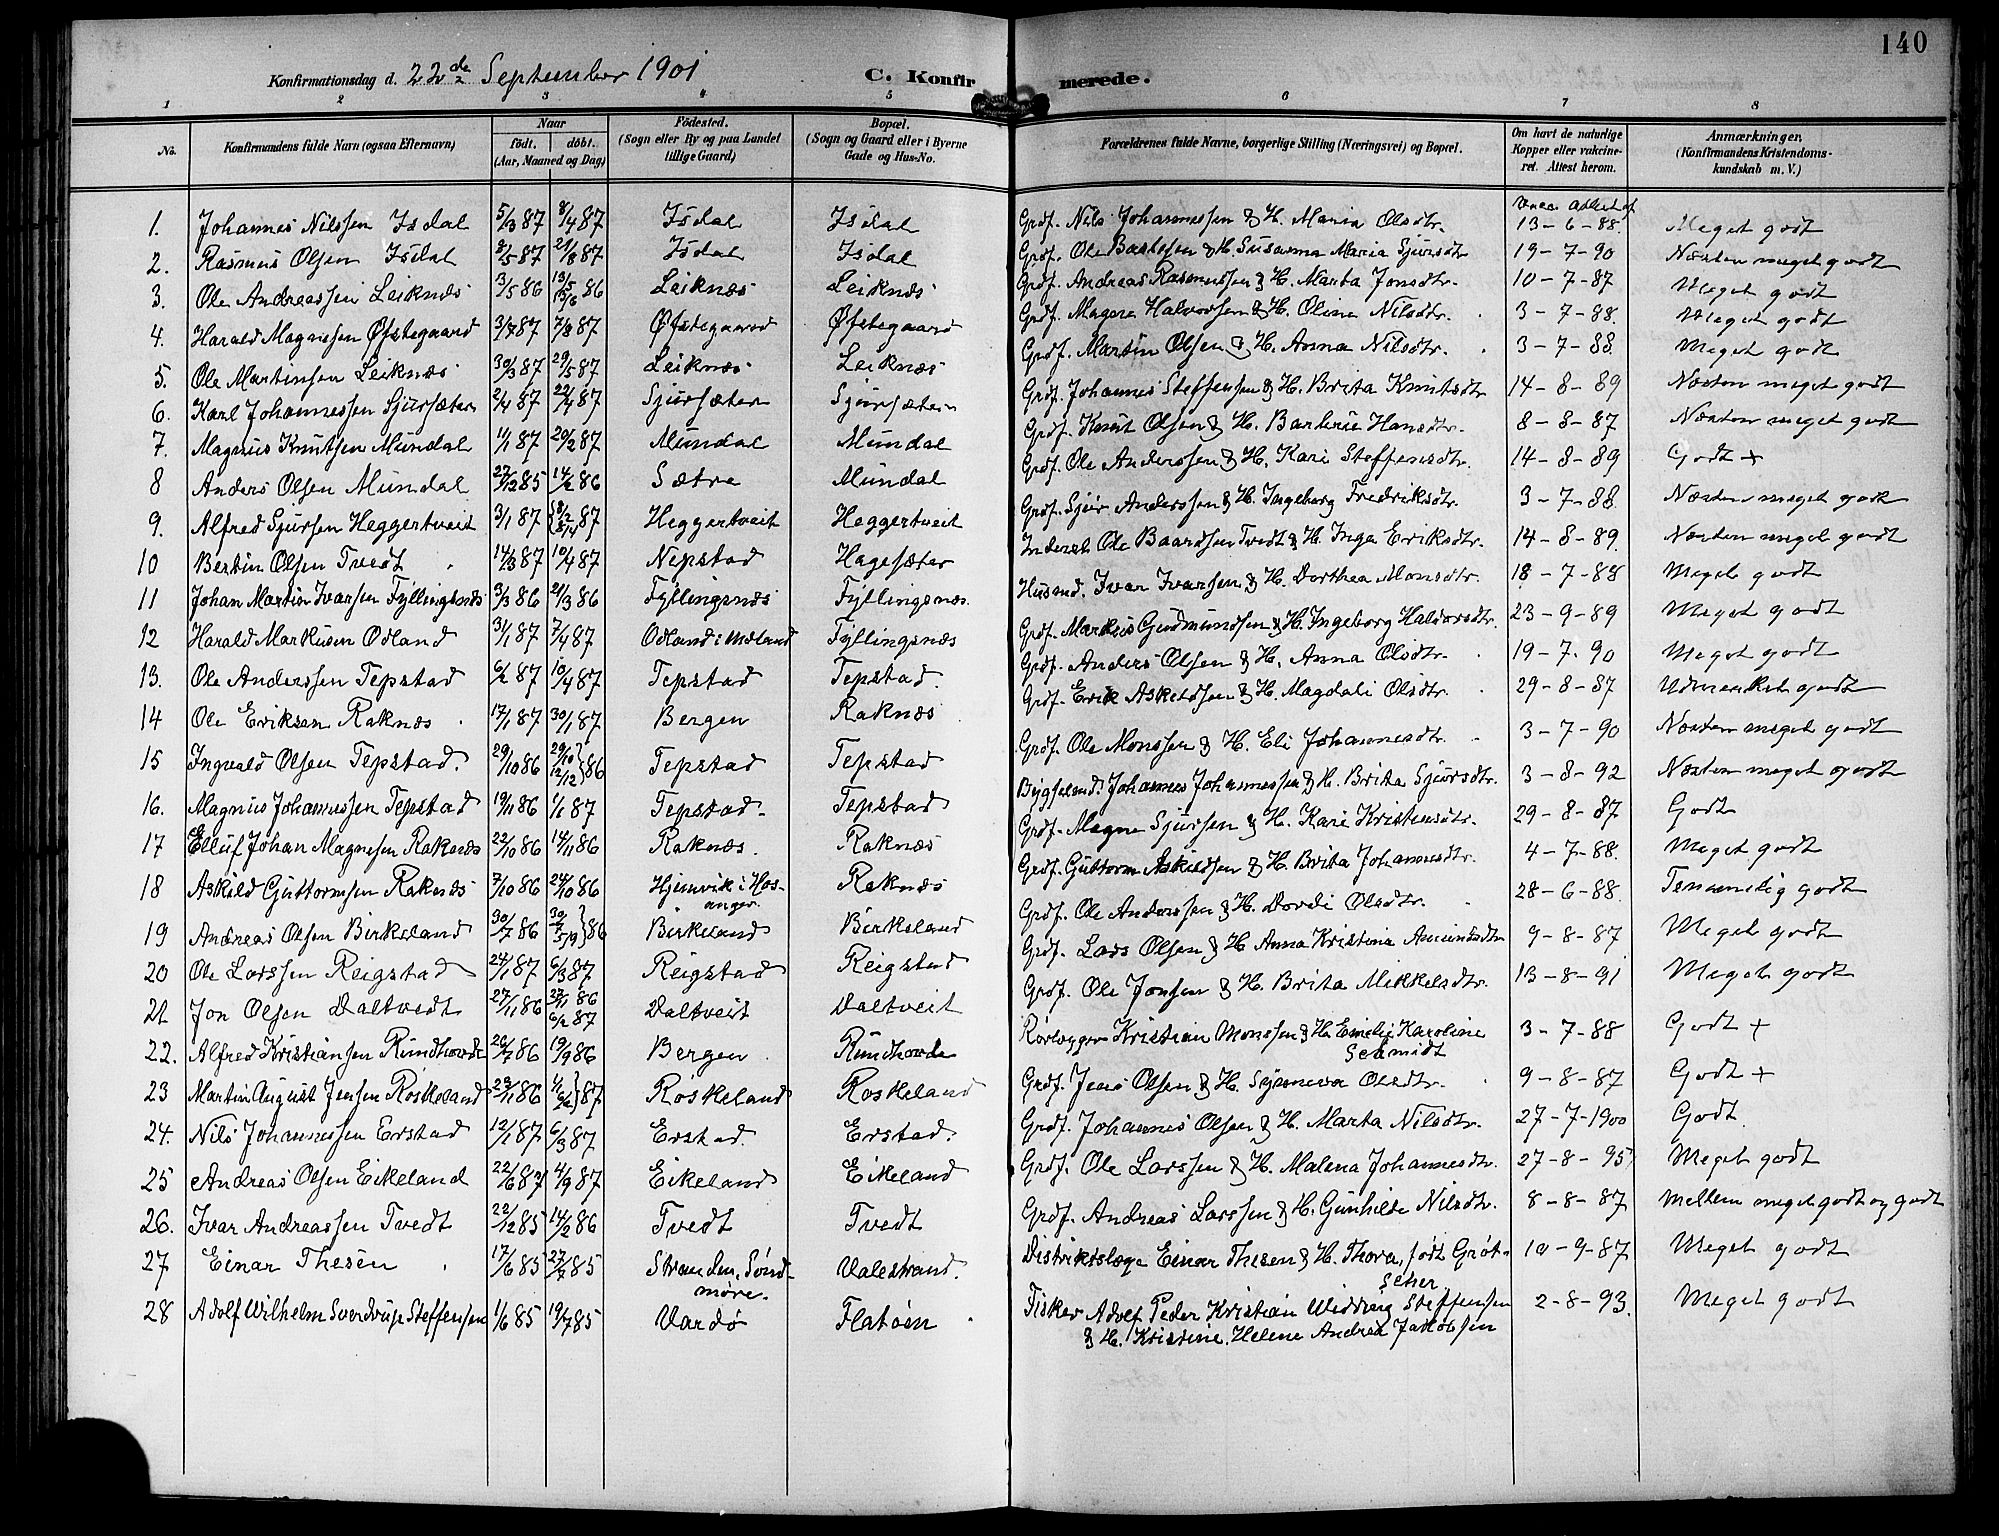 140
Konfirmationsdag d. 22de September 1901 C. Konfirmerede.
1 2 3 4 5 6 7 8
No. Konfirmandens fulde Navn (ogsaa Efternavn) Naar født. døbt. (Aar, Maaned og Dag) Fødested. (Sogn eller By og paa Landet tillige Gaard) Bopæl. (Sogn og Gaard eller i Byerne Gade og Hus-No. Forældrenes fulde Navne, borgerlige Stilling (Næringsvei) og Bopæl. Om havt de naturlige Kopper eller vakcineret. Attest herom. Anmærkninger. (Konfirmandens Kristendomskundskab m. V.)
1. Johannes Nilssen Isdal 5/3 87 8/4 87 Isdal Isdal Grdf. Nils Johannessen & H. Maria Olsdtr. Vacc. Attest af 13-6-88. Meget godt
2. Rasmus Olsen Isdal 8/5 87 21/8 87 Isdal Isdal Grdf. Ole Baardsen & H. Susanna Maria Sjursdtr. 19-7-90 Næsten meget godt
3. Ole Andreassen Leiknæs 3/5 86 13/5 86 Leiknæs Leiknæs Grdf. Andreas Rasmussen & H. Marta Jonsdtr. 10-7-87 Meget godt
4. Harald Magnesen Øfstegaard 3/7 87 7/8 87 Øfstegaard Øfstegaard Grdf. Magne Halvorsen & H. Oline Nilsdtr. 3-7-88. Meget godt
5. Ole Martinsen Leiknæs 30/3 87 29/5 87 Leiknæs Leiknæs Grdf. Martin Olsen & H. Anna Nilsdtr. 3-7-88. Meget godt
6. Karl Johannessen Sjursæter 2/4 87 22/4 87 Sjursæter Sjursæter Grdf. Johannes Steffensen & H. Brita Knutsdtr 14-8-89 Næsten meget godt
7. Magnus Knutsen Mundal 11/1 87 20/2 87 Mundal Mundal Grdf. Knut Olsen & H. Barbrie Hansdtr. 8-8-87 Næsten meget godt
8 Anders Olsen Mundal 27/12 85 14/2 86 Sætre Mundal Grdf. Ole Anderssen & H. Kari Steffensdtr. 14-8-89 Godt +
9. Alfred Sjursen Heggertveit 3/1 87 8/2 8/4 87 Heggertveit Heggertveit Grdf. Sjur Anderssen & H. Ingeborg Fredriksdtr. 3-7-88. Næsten meget godt
10 Bertin Olsen Tvedt 14/3 87 10/4 87 Nepstad Hagesæter Inderst Ole Baardsen Tvedt & H. Inga Eriksdtr. 14-8-89. Næsten meget godt
11 Johan Martin Ivarsen Fyllingsnæs 3/3 86 21/3 86 Fyllingsnæs Fyllingsnæs. Husmd. Ivar Ivarsen & H. Dorthea Monsdtr. 18-7-88 Meget godt
12 Harald Markusen Odland 31/1 87 7/4 87 Odland i Mæland Fyllingsnæs Grdf. Markus Gudmundsen & H. Ingeborg Haldorsdtr. 23-9-89 Meget godt
13. Ole Anderssen Tepstad 6/2 87 10/4 87 Tepstad Tepstad. Grdf. Anders Olsen & H. Anna Olsdtr. 19-7-90 Meget godt
14 Ole Eriksen Raknæs 17/1 87 30/1 87 Bergen Raknæs Grdf. Erik Askeldsen & H. Magdali Olsdtr. 29-8-87 Udmerket godt
15 Ingvald Olsen Tepstad. 29/10 86 29/10 12/12 }86 Tepstad Tepstad Grdf. Ole Monssen & H. Eli Johannesdtr. 3-7-90 Næsten meget godt
16. Magnus Johannessen Tepstad 19/11 86 1/1 87 Tepstad. Tepstad Bygselmd. Johannes Johannessen & H. Brita Sjursdtr. 3-8-92 Næsten meget godt
17 Elluf Johan Magnesen Raknæs 22/10 86 14/11 86 Raknæs. Raknæs Grdf. Magne Sjursen & H. Kari Kristensdtr. 29-8-87 Godt
18 Askild Guttormsen Raknæs 7/10 86 24/10 86 Hjemvik i Hosanger. Raknæs Grdf. Guttorm Askildsen & H. Brita Johannesdtr. 4-7-88. Meget godt
19 Andreas Olsen Birkeland 30/7 86 30/7 5/9 }86 Birkeland Birkeland Grdf. Ole Anderssen & H. Dordi Olsdtr. 28-6-88. Temmelig godt
20 Ole Larssen Reigstad 24/1 87 6/3 87 Reigstad Reigstad Grdf. Lars Olsen & H. Anna Kristina Amundsdtr 9-8-87 Meget godt
21 Jon Olsen Daltvedt 27/11 86 27/11 86 6/2 87 Daltveit Daltveit Grdf. Ole Jonsen & H. Brita Mikkelsdtr. 13-8-91 Meget godt
22. Alfred Kristiansen Rundhovde 26/7 86 19/9 86 Bergen Rundhovde Rørlægger Kristian Monssen & H. Emilie Karoline Schmidt 3-7-88 Godt +
23 Martin August Jensen Roskeland 23/11 86 1/1 6/2 }87 Roskeland Roskeland Grdf. Jens Olsen & H. Synneva Olsdtr. 9-8-87 Godt +
24. Nils Johannessen Erstad 12/1 87 6/3 87 Erstad. Erstad. Grdf. Johannes Olsen & H. Marta Nilsdtr. 27-7-1900 Godt.
25 Andreas Olsen Eikeland 22/6 87 4/9 87 Eikeland Eikeland Grdf. Ole Larssen & H. Malena Johannesdtr. 27-8-95 Meget godt
26. Ivar Andreassen Tvedt 22/12 85 14/2 86 Tvedt Tvedt Grdf. Andreas Larssen & H. Gunhilde Nilsdtr. 8-8-87 Mellem meget godt og godt
27 Einar Thesen 17/6 85 27/7 85 Stranden, Søndmøre. Valestrand. Distriktslæge Einar Thesen & H. Thora, født Grøtscher 10-9-87 Meget godt
28 Adolf Wilhelm Sverdrup Steffensen 1/6 85 19/7 85 Vardø Flatøen Fisker Adolf Peder Kristian Widding Steffensen
& H. Kristine Helene Andrea Jakobsen 2-8-93. Meget godt